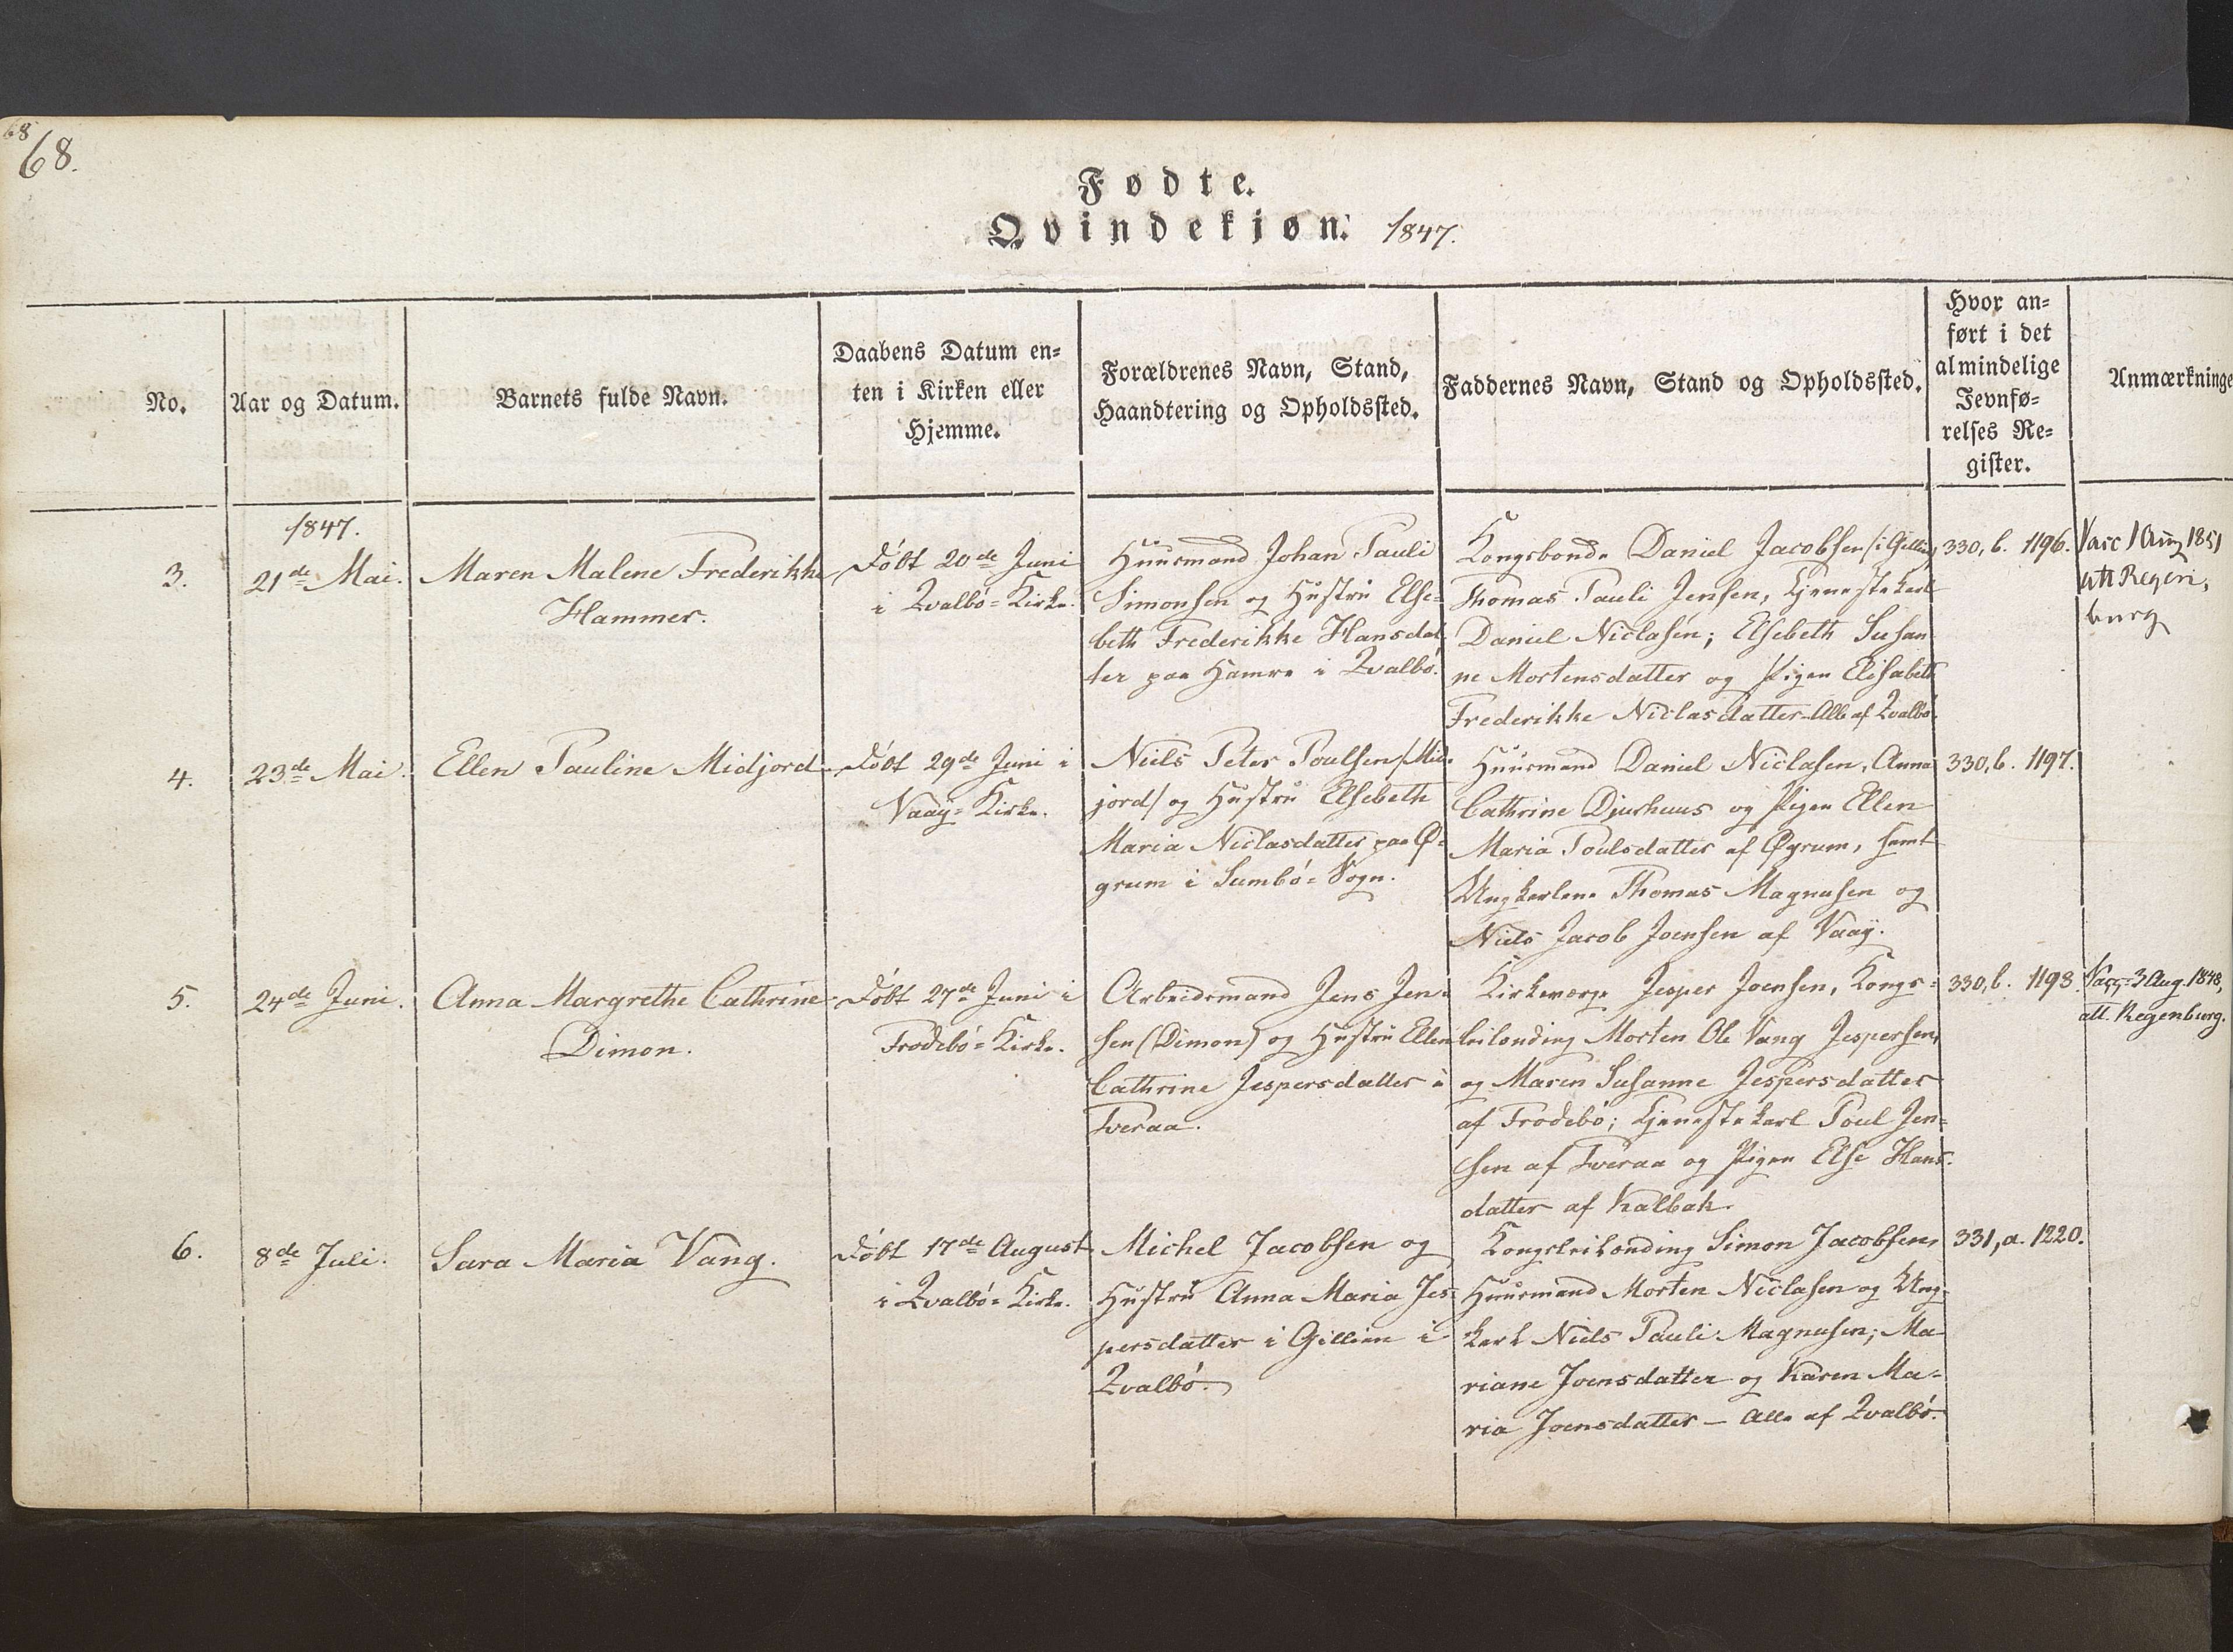 68
68.
Fødte.
Qvindekjøn. 1847.
No.
Aar og Datum.
Barnets fulde Navn.
Daabens Datum en=
ten i Kirken eller
Hjemme.
Forældrenes Navn, Stand,
Haandtering og Opholdssted.
Faddernes Navn, Stand og Opholdssted.
Hvor an=
ført i det
almindelige
Jevnfø=
relses Re=
gister.
Anmærkninge
1847.
3.
21de Mai.
Maren Malene Frederikke
Hammer.
Døbt 20de Juni
i Qvalbø=Kirke.
Huusmand Johan Pauli
Simonsen og Hustru Else=
beth Frederikke Hansdat
ter paa Hamre i Qvalbø.
Kongsbonde Daniel Jacobsen (i Gillin)
Thomas Pauli Jensen, Tjenestekarl
Daniel Niclasen; Elsebeth Susan
ne Mortensdatter og Pigen Elisabeth
Frederikke Niclasdatter. Alle af Qvalbø.
330, b. 1196.
Vacc 1 Aug 1851
att Regen,
burg
4.
23de Mai.
Ellen Pauline Midjord
Døbt 29de Juni i
Vaag=Kirke.
Niels Peter Poulsen (Mid=
jord) og Hustru Elsebeth
Maria Niclasdatter paa Ø=
grum i Sumbø=Sogn.
Huusmand Daniel Niclasen, Anna
Cathrine Djurhuus og Pigen Ellen
Maria Poulsdatter af Øgrum, samt
Ungkarlene Thomas Magnusen og
Niels Jacob Joensen af Vaag.
330, b. 1197.
5.
24de Juni.
Anna Margrethe Cathrine
Dimon.
Døbt 27de Juni i
Frodebø=Kirke.
Arbeidsmand Jens Jen=
sen (Dimon) og Hustru Ellen
Cathrine Jespersdatter i
Tveraa.
Kirkeværge Jesper Joensen, Kongs=
leilending Morten Ole Vang Jespersen,
og Maren Susanne Jespersdatter
af Frodebø; Tjenestekarl Poul Jen=
sen af Tveraa og Pigen Else Hans=
datter af Kalbak.
330, b. 1198.
Vacc. 3 Aug. 1848,
att. Regenburg.
6.
8de Juli.
Sara Maria Vang.
Døbt 17de August
i Qvalbø=Kirke.
Michel Jacobsen og
Hustru Anna Maria Jes
persdatter i Gillien i
Qvalbø.
Kongsleilending Simon Jacobsen,
Huusmand Morten Niclasen og Ung
karl Niels Pauli Magnusen; Ma
riane Joensdatter og Karen Ma=
ria Joensdatter — Alle af Qvalbø.
331, a. 1220.